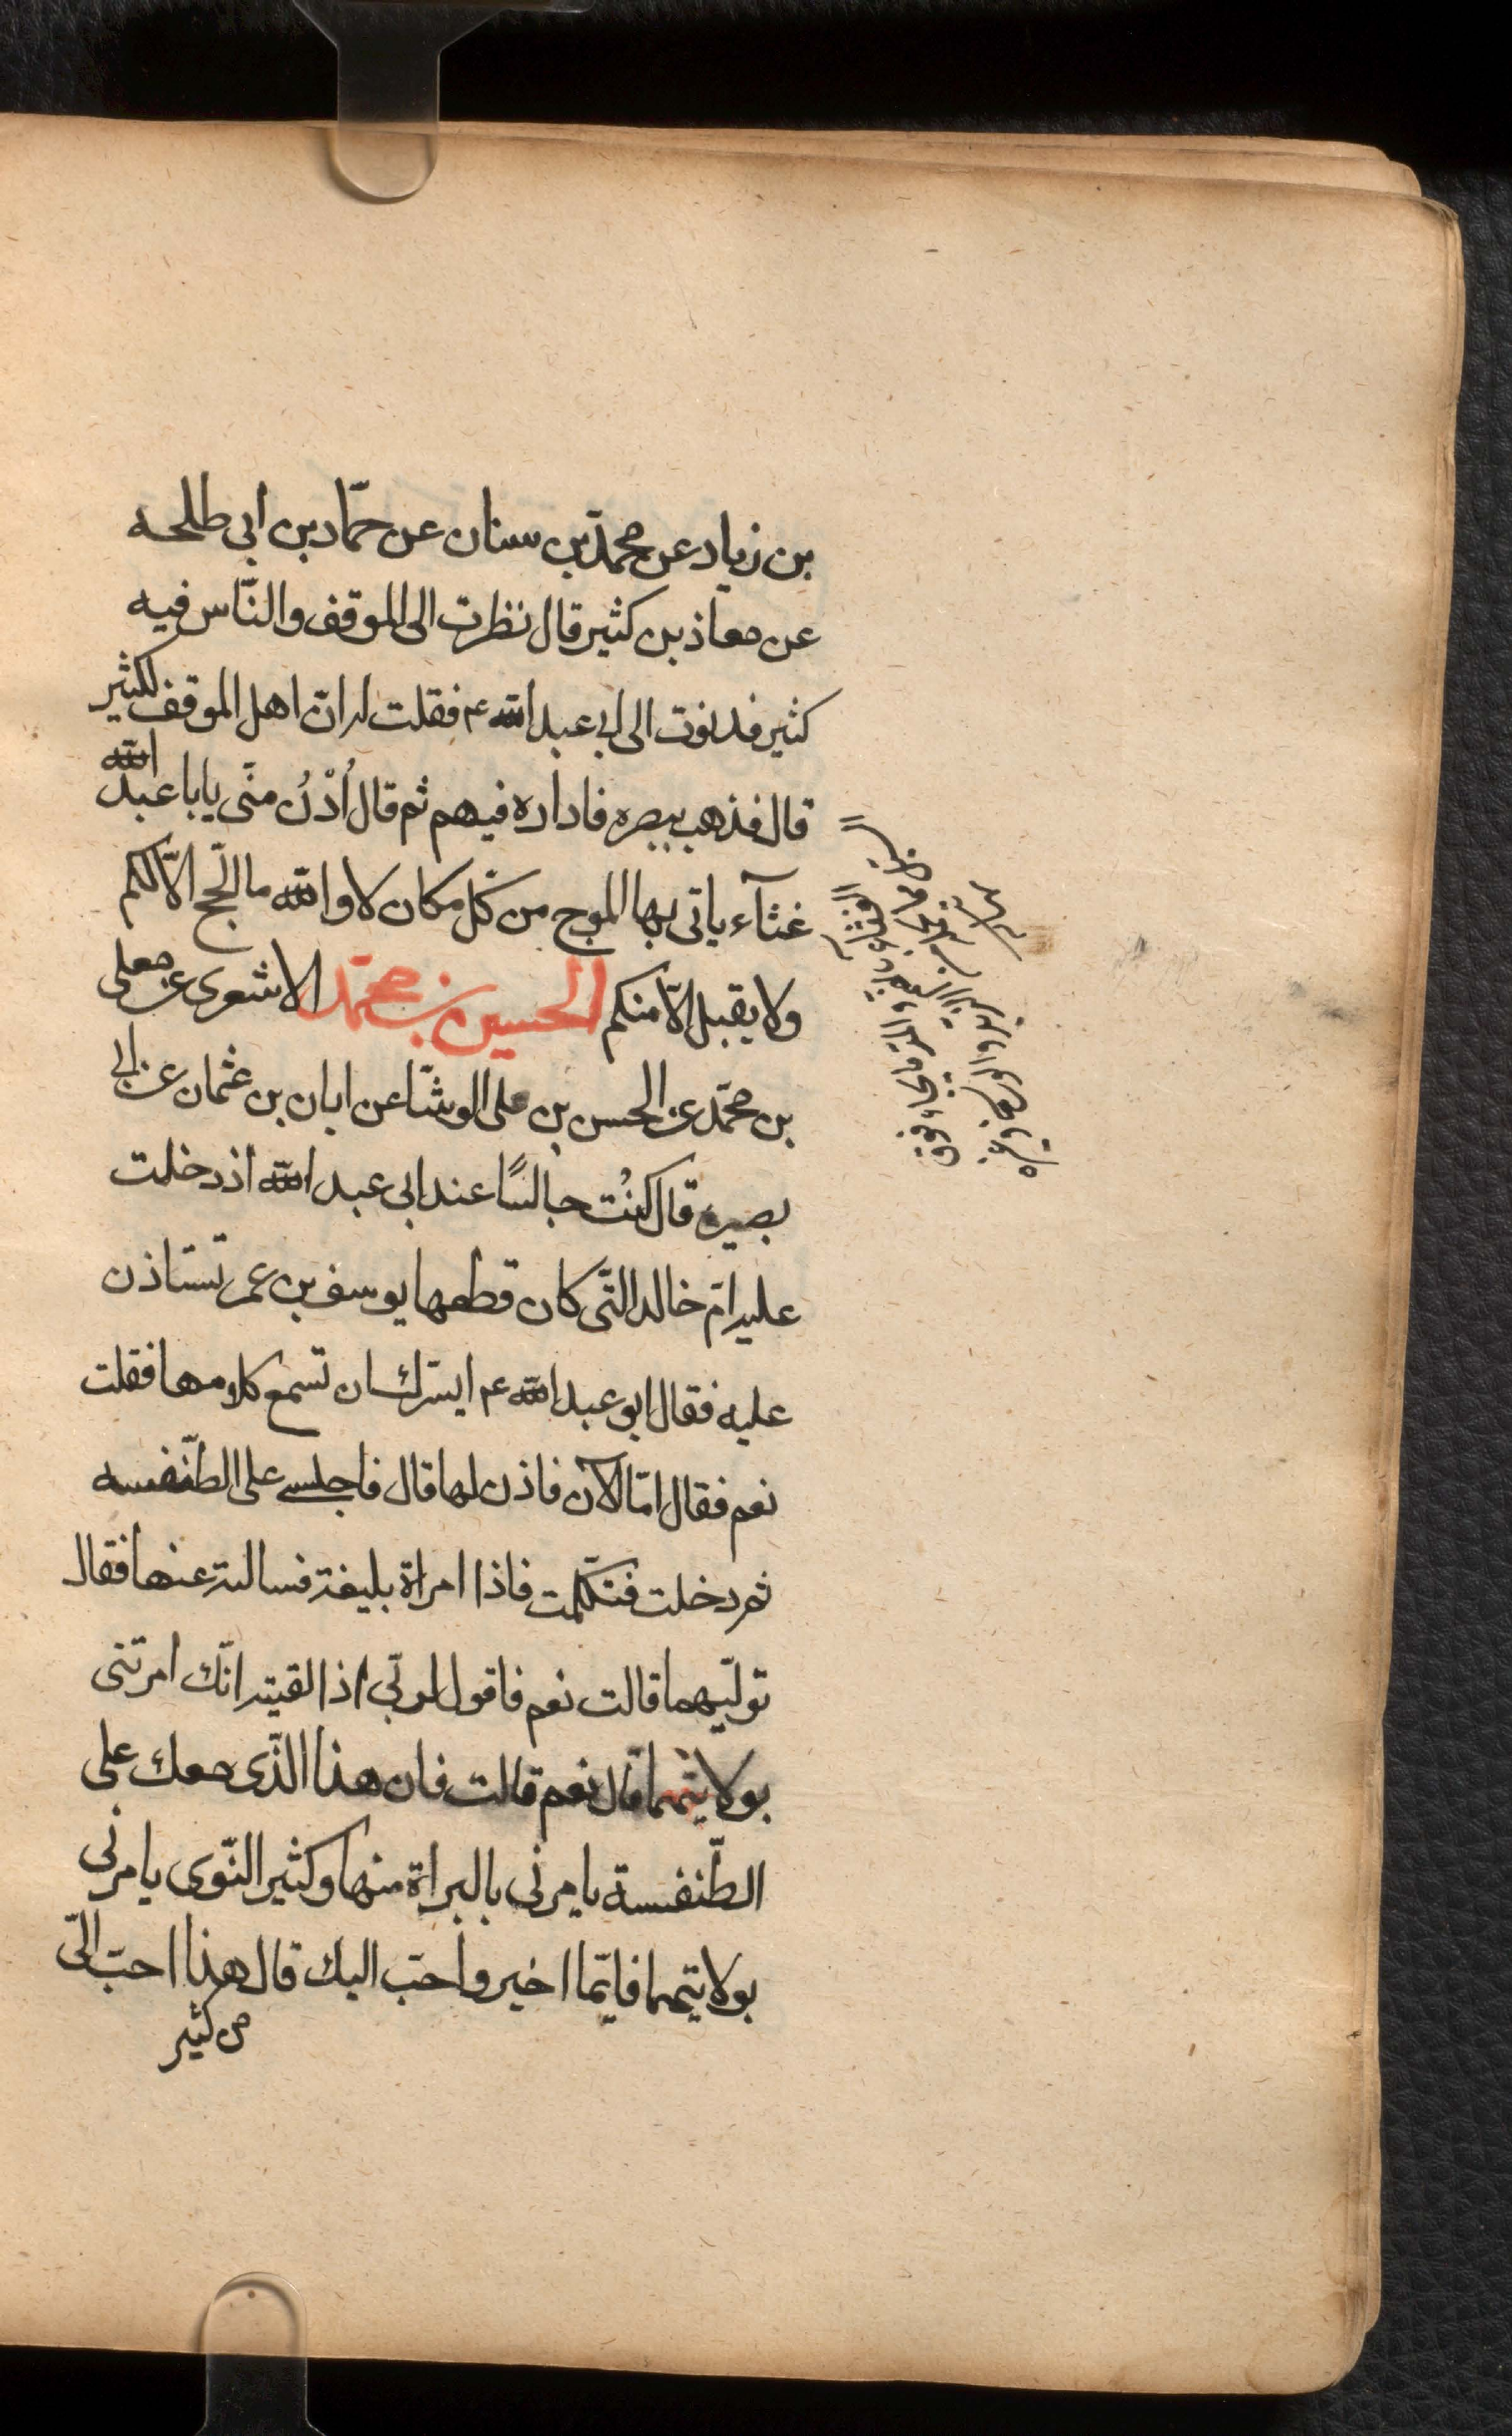 بن زياد عن محمّد بن سنان عن حمّاد بن ابى طلحه
عن معاذ بن كثير قال نظرت الى الموقف والنّاس فيه
كثير فدنوت الى ابى عبد الله ع فقلت له انّ اهل الموقف لكثير
قال فذهب ببصره فاداره فيهم ثم قال اُدْنُ منّى يابا عبد الله
غثآء ياتى بها الموج من كلّ مكان لا والله ما الحّج الّا لكم
ولا يقبل الّا منكم الحسين بن محمّد الاشعرى عن معلى
بن محمّد عن الحسن بن على الوشّا عن ابان بن عثمان عن ابى
بصير قال كنُت جالسًا عند ابى عبد الله اذ دخلت
عليه امّ خالد التّى كان قطعها يوسف بن عمر تستاذن
عليه فقال ابو عبد الله ع ايسّرك ان تسمع كلامها فقلت
نعم فقال امّا الآن فاذن لها قال فاجلسنى على الطّنفسه
ثم دخلت فتكلّمت فاذا امراة بليغة فسالته عنهما فقال
تولّيهما قالت نعم فاقول لربّى اذا لقيته انّك امرتنى
بولايتهما قال نعم قالت فان هذا الذّى معك على
الطّنفسة يامرنى بالبراة منهما وكثير النّوى يامرنى
بولايتهما فايّما اخير واحبّ اليك قال هذا احبّ الىّ
من كثير